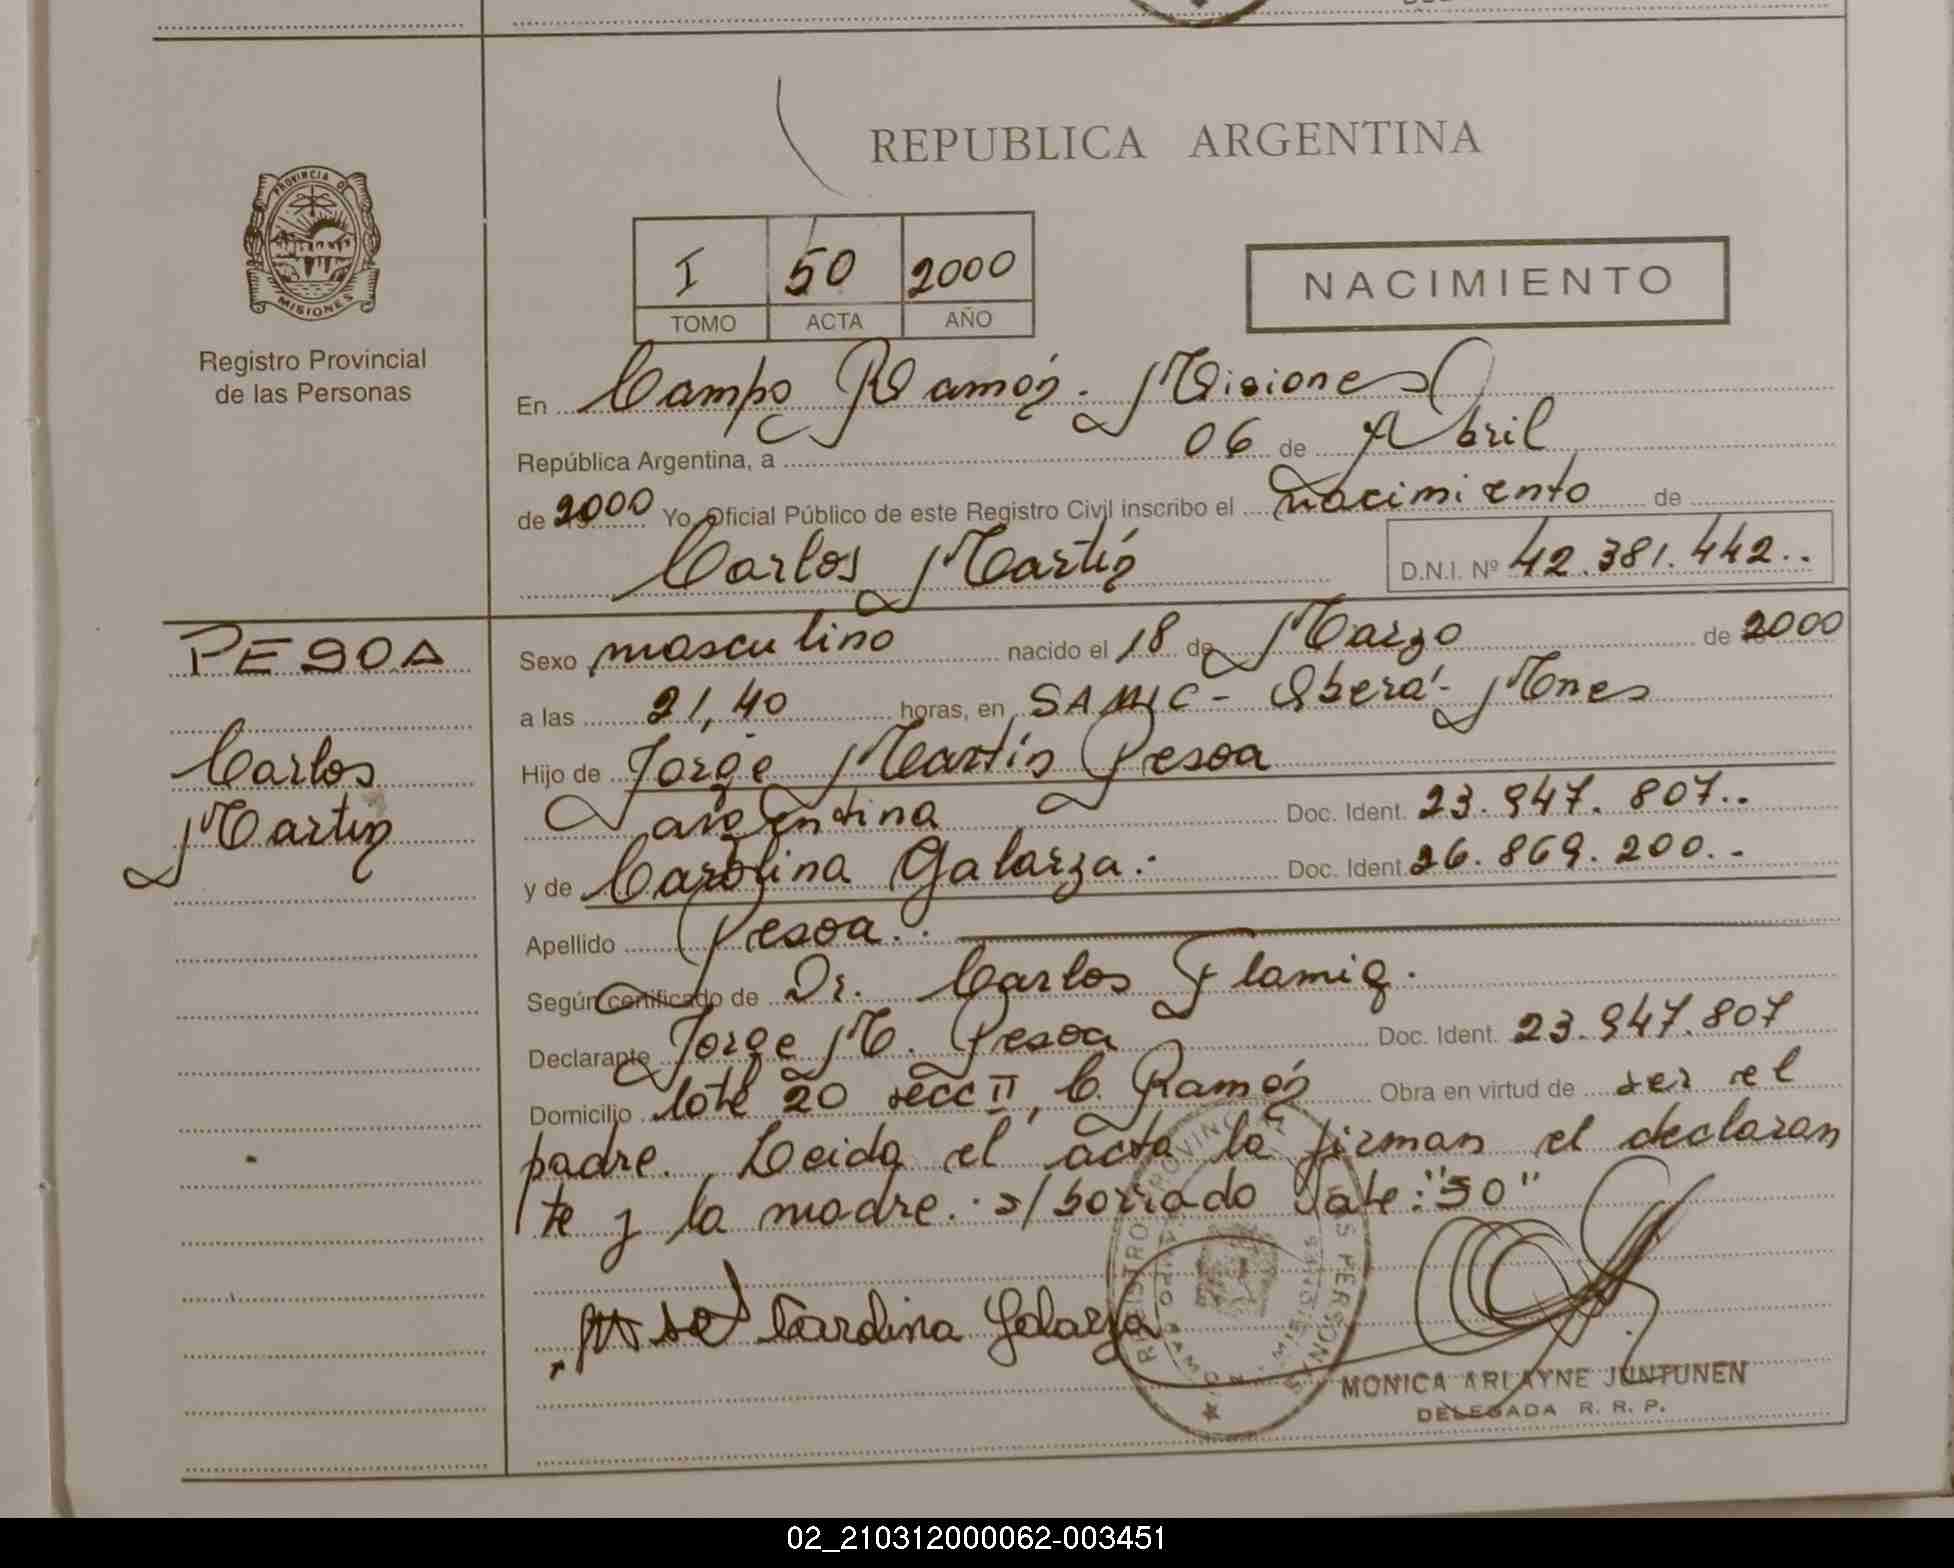 REPUBLICA ARGENTINA
PROVINCIA DE
MISIONES
Registro Provincial
de las Personas
I 50 2000
TOMO ACTA AÑO
NACIMIENTO
En Campo Ramón. Misiones
República Argentina, a 06 de Abril
de 2000 Yo Oficial Público de este Registro Civil inscribo el nacimiento de
Carlos Martín D.N.I. Nº 42.381.442..
PESOA
Carlos
Martín
Sexo masculino nacido el 18 de Marzo de 2000
a las 21,40 horas, en SAMIC - Oberá - Mnes
Hijo de Jorge Martín Pesoa
argentina Doc. Ident. 23.947.807..
y de Carolina Galarza: Doc. Ident. 26.869.200..
Apellido Pesoa..
Según certificado de Dr. Carlos
Declarante Jorge M. Pesoa Doc. Ident. 23.947.807
Domicilio lote 20 secc II, C. Ramón Obra en virtud de ser el
padre. Leida el acta la firman el declaran
te y la madre. s/borrado vale: "50"
Carolina Galarza
REGISTRO PROVINCIAL DE LAS PERSONAS
MISIONES
MONICA ARLAYNE JUNTUNEN
DELEGADA R. R. P.
02_210312000062-003451